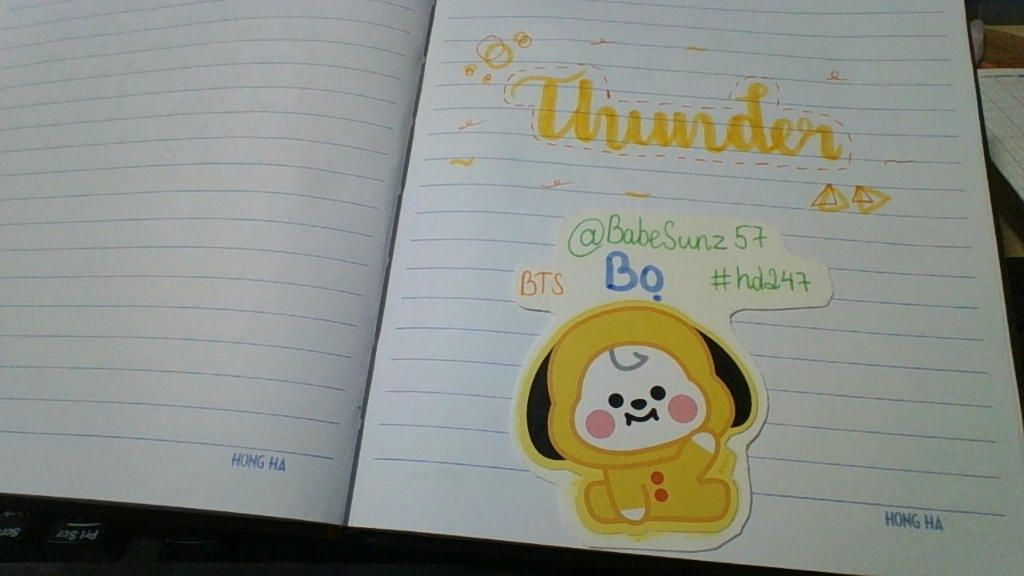 Thunder
@BabeSunz57
BTS Bọ #hd247
HONG HA
HONG HA
Prt Scr